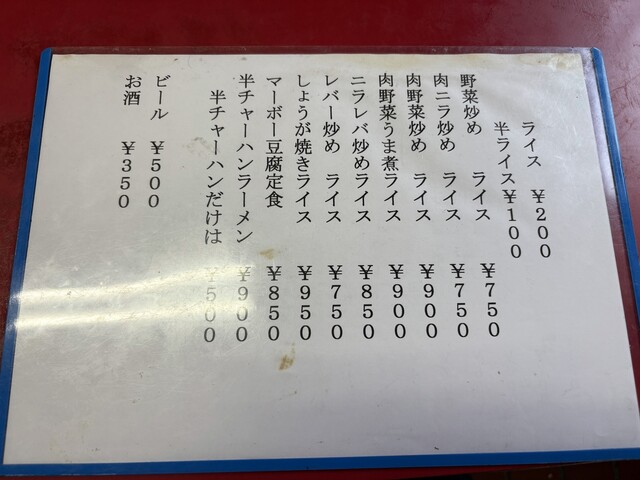 ライス　¥200
半ライス¥100
野菜炒め　ライス　¥750
肉ニラ炒め　ライス　¥750
肉野菜炒め　ライス　¥900
肉野菜うま煮ライス　¥900
ニラレバ炒めライス　¥850
レバー炒め　ライス　¥750
しょうが焼きライス　¥950
マーボー豆腐定食　¥850
半チャーハンラーメン　¥900
半チャーハンだけは　¥500
ビール　¥500
お酒　¥350